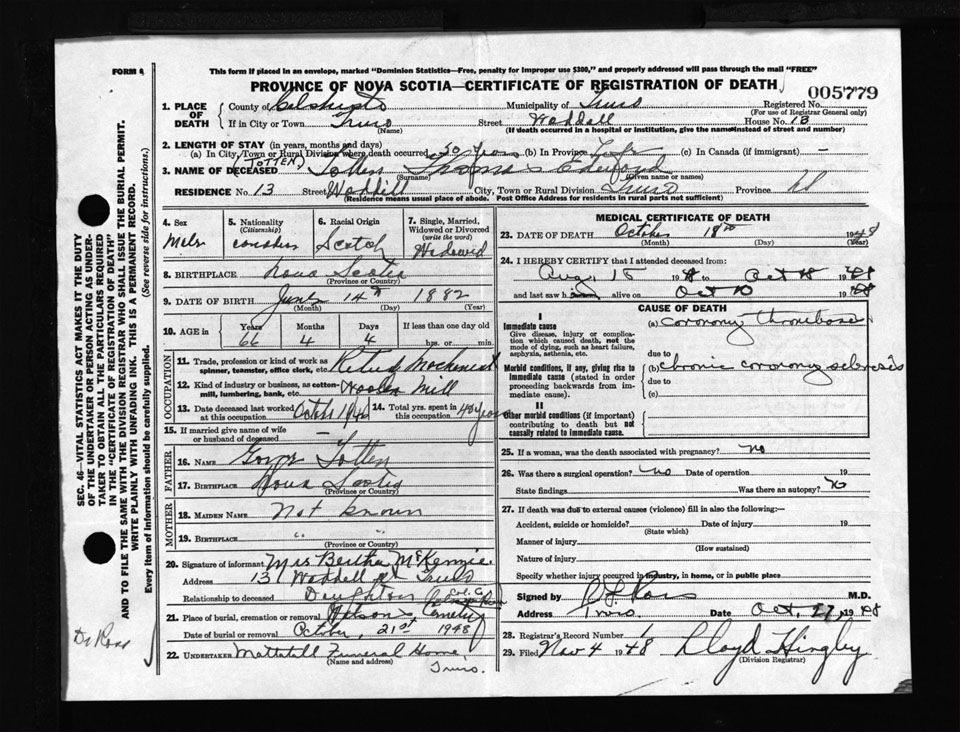 FORM 4
This form if placed in an envelope, marked "Dominion Statistics—Free, penalty for improper use $300," and properly addressed will pass through the mail "FREE"
PROVINCE OF NOVA SCOTIA—CERTIFICATE OF REGISTRATION OF DEATH
005779
1. PLACE OF DEATH
County of Colchester Municipality of Truro Registered No.
(For use of Registrar General only)
If in City or Town Truro Street Waddell House No. 13
(Name) (If death occurred in a hospital or institution, give the name instead of street and number)
2. LENGTH OF STAY (in years, months and days)
(a) In City, Town or Rural Division where death occurred 30 years (b) In Province Life (c) In Canada (if immigrant) —
(TOTTEN)
3. NAME OF DECEASED Totten Thomas
(Surname) (Given name or names)
RESIDENCE No. 13 Street Waddell City, Town or Rural Division Truro Province NS
(Residence means usual place of abode. Post Office Address for residents in rural parts not sufficient)
4. Sex Male
5. Nationality (Citizenship) Canadian
6. Racial Origin Scotch
7. Single, Married, Widowed or Divorced (write the word) Widowed
8. BIRTHPLACE Nova Scotia
(Province or Country)
9. DATE OF BIRTH June 14th 1882
(Month) (Day) (Year)
10. AGE in Years Months Days If less than one day old
66 4 4 hrs. or min.
OCCUPATION
11. Trade, profession or kind of work as spinner, teamster, office clerk, etc. Retired Machinist
12. Kind of industry or business, as cotton-mill, lumbering, bank, etc. Woolen Mill
13. Date deceased last worked at this occupation
14. Total yrs. spent in this occupation 40 years
15. If married give name of wife or husband of deceased —
FATHER
16. NAME George Totten
17. BIRTHPLACE Nova Scotia
(Province or Country)
MOTHER
18. MAIDEN NAME Not known
19. BIRTHPLACE " "
(Province or Country)
20. Signature of informant Mrs Bertha McKenzie
Address 13 Waddell St Truro
Relationship to deceased Daughter
21. Place of burial, cremation or removal Cemetery
Date of burial or removal October, 21st 1948
22. UNDERTAKER Mattatall Funeral Home
(Name and address)
Truro.
MEDICAL CERTIFICATE OF DEATH
23. DATE OF DEATH October 18th 1948
(Month) (Day) (Year)
24. I HEREBY CERTIFY that I attended deceased from:
Aug 15 1948 to Oct 18 1948
and last saw him alive on Oct 10 1948
CAUSE OF DEATH
I
Immediate cause
Give disease, injury or complication which caused death, not the mode of dying, such as heart failure, asphyxia, asthenia, etc.
(a) coronary thrombosis
due to
Morbid conditions, if any, giving rise to immediate cause (stated in order proceeding backwards from immediate cause).
(b) chronic coronary sclerosis
due to
(c)
II
Other morbid conditions (if important) contributing to death but not causally related to immediate cause.
25. If a woman, was the death associated with pregnancy? no
26. Was there a surgical operation? no Date of operation 19
State findings Was there an autopsy? no
27. If death was due to external causes (violence) fill in also the following:—
Accident, suicide or homicide? Date of injury 19
(State which)
Manner of injury
(How sustained)
Nature of injury
Specify whether injury occurred in industry, in home, or in public place
Signed by Ross M.D.
Address Truro Date Oct. 27, 1948
28. Registrar's Record Number 1
29. Filed Nov 4 1948 Lloyd Hingley
(Division Registrar)
SEC. 46—VITAL STATISTICS ACT MAKES IT THE DUTY OF THE UNDERTAKER OR PERSON ACTING AS UNDERTAKER TO OBTAIN ALL THE PARTICULARS REQUIRED IN THE "CERTIFICATE OF REGISTRATION OF DEATH" AND TO FILE THE SAME WITH THE DIVISION REGISTRAR WHO SHALL ISSUE THE BURIAL PERMIT.
WRITE PLAINLY WITH UNFADING INK. THIS IS A PERMANENT RECORD.
Every item of information should be carefully supplied. (See reverse side for instructions.)
Dr Ross